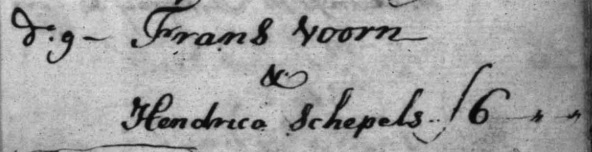 d:9 - Frans Voorn
&
Hendrica Schepels ƒ 6 " "